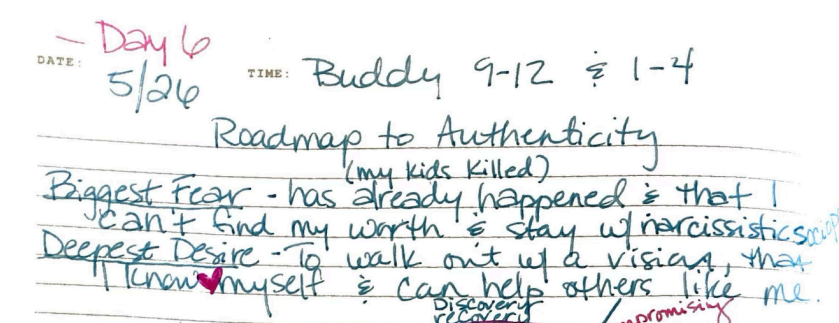 — Day 6
DATE: 5/26 TIME: Buddy 9-12 & 1-4
Roadmap to Authenticity
(my kids killed)
Biggest Fear - has already happened & that I
can't find my worth & stay w/ narcissistic
Deepest Desire - To walk out w/ a vision, that
I know ♥ myself & can help others like me.
Discovery
recovery